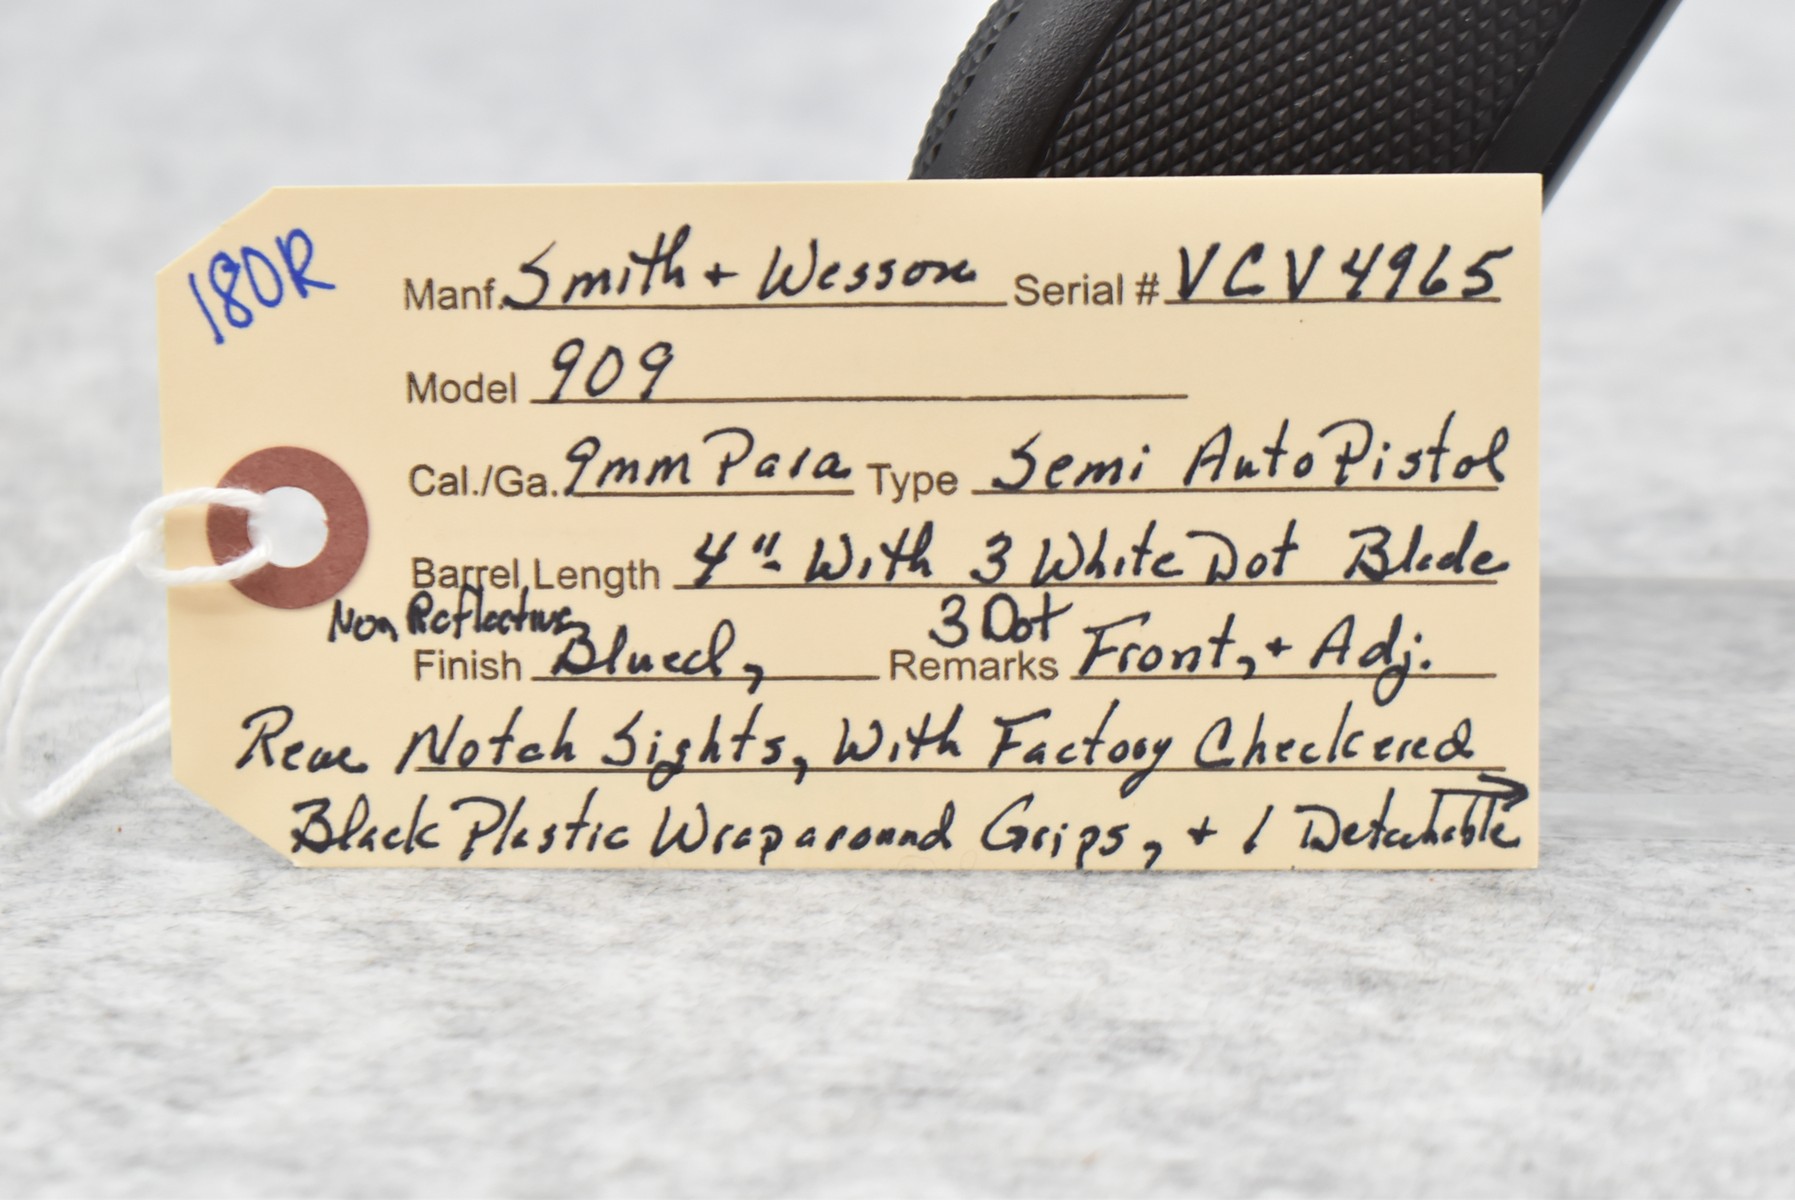 180R
Manf. Smith + Wesson Serial # VCV4965
Model 909
Cal./Ga. 9mm Para Type Semi Auto Pistol
Barrel Length 4" With 3 White Dot Blade
Non Reflective 3 Dot
Finish Blued, Remarks Front, + Adj.
Rear Notch Sights, With Factory Checkered
Black Plastic Wraparound Grips, + 1 Detachable →